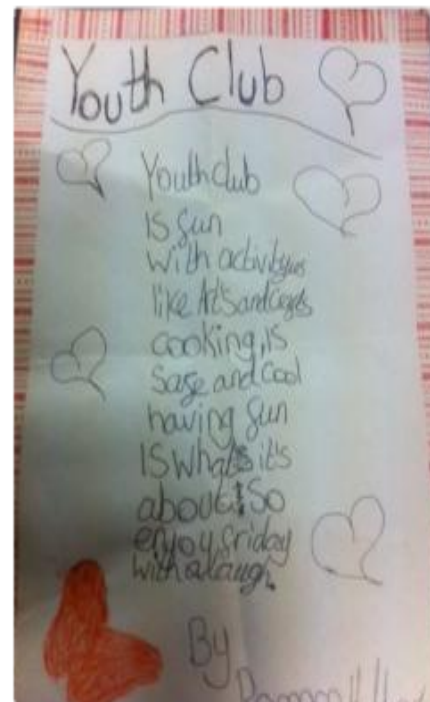 Youth Club
Youth club
Is fun
with activitys
like Art's and Crafts
cooking, is
safe and cool
having fun
Is what's it's
about! So
enjoy friday
with a laugh.
By